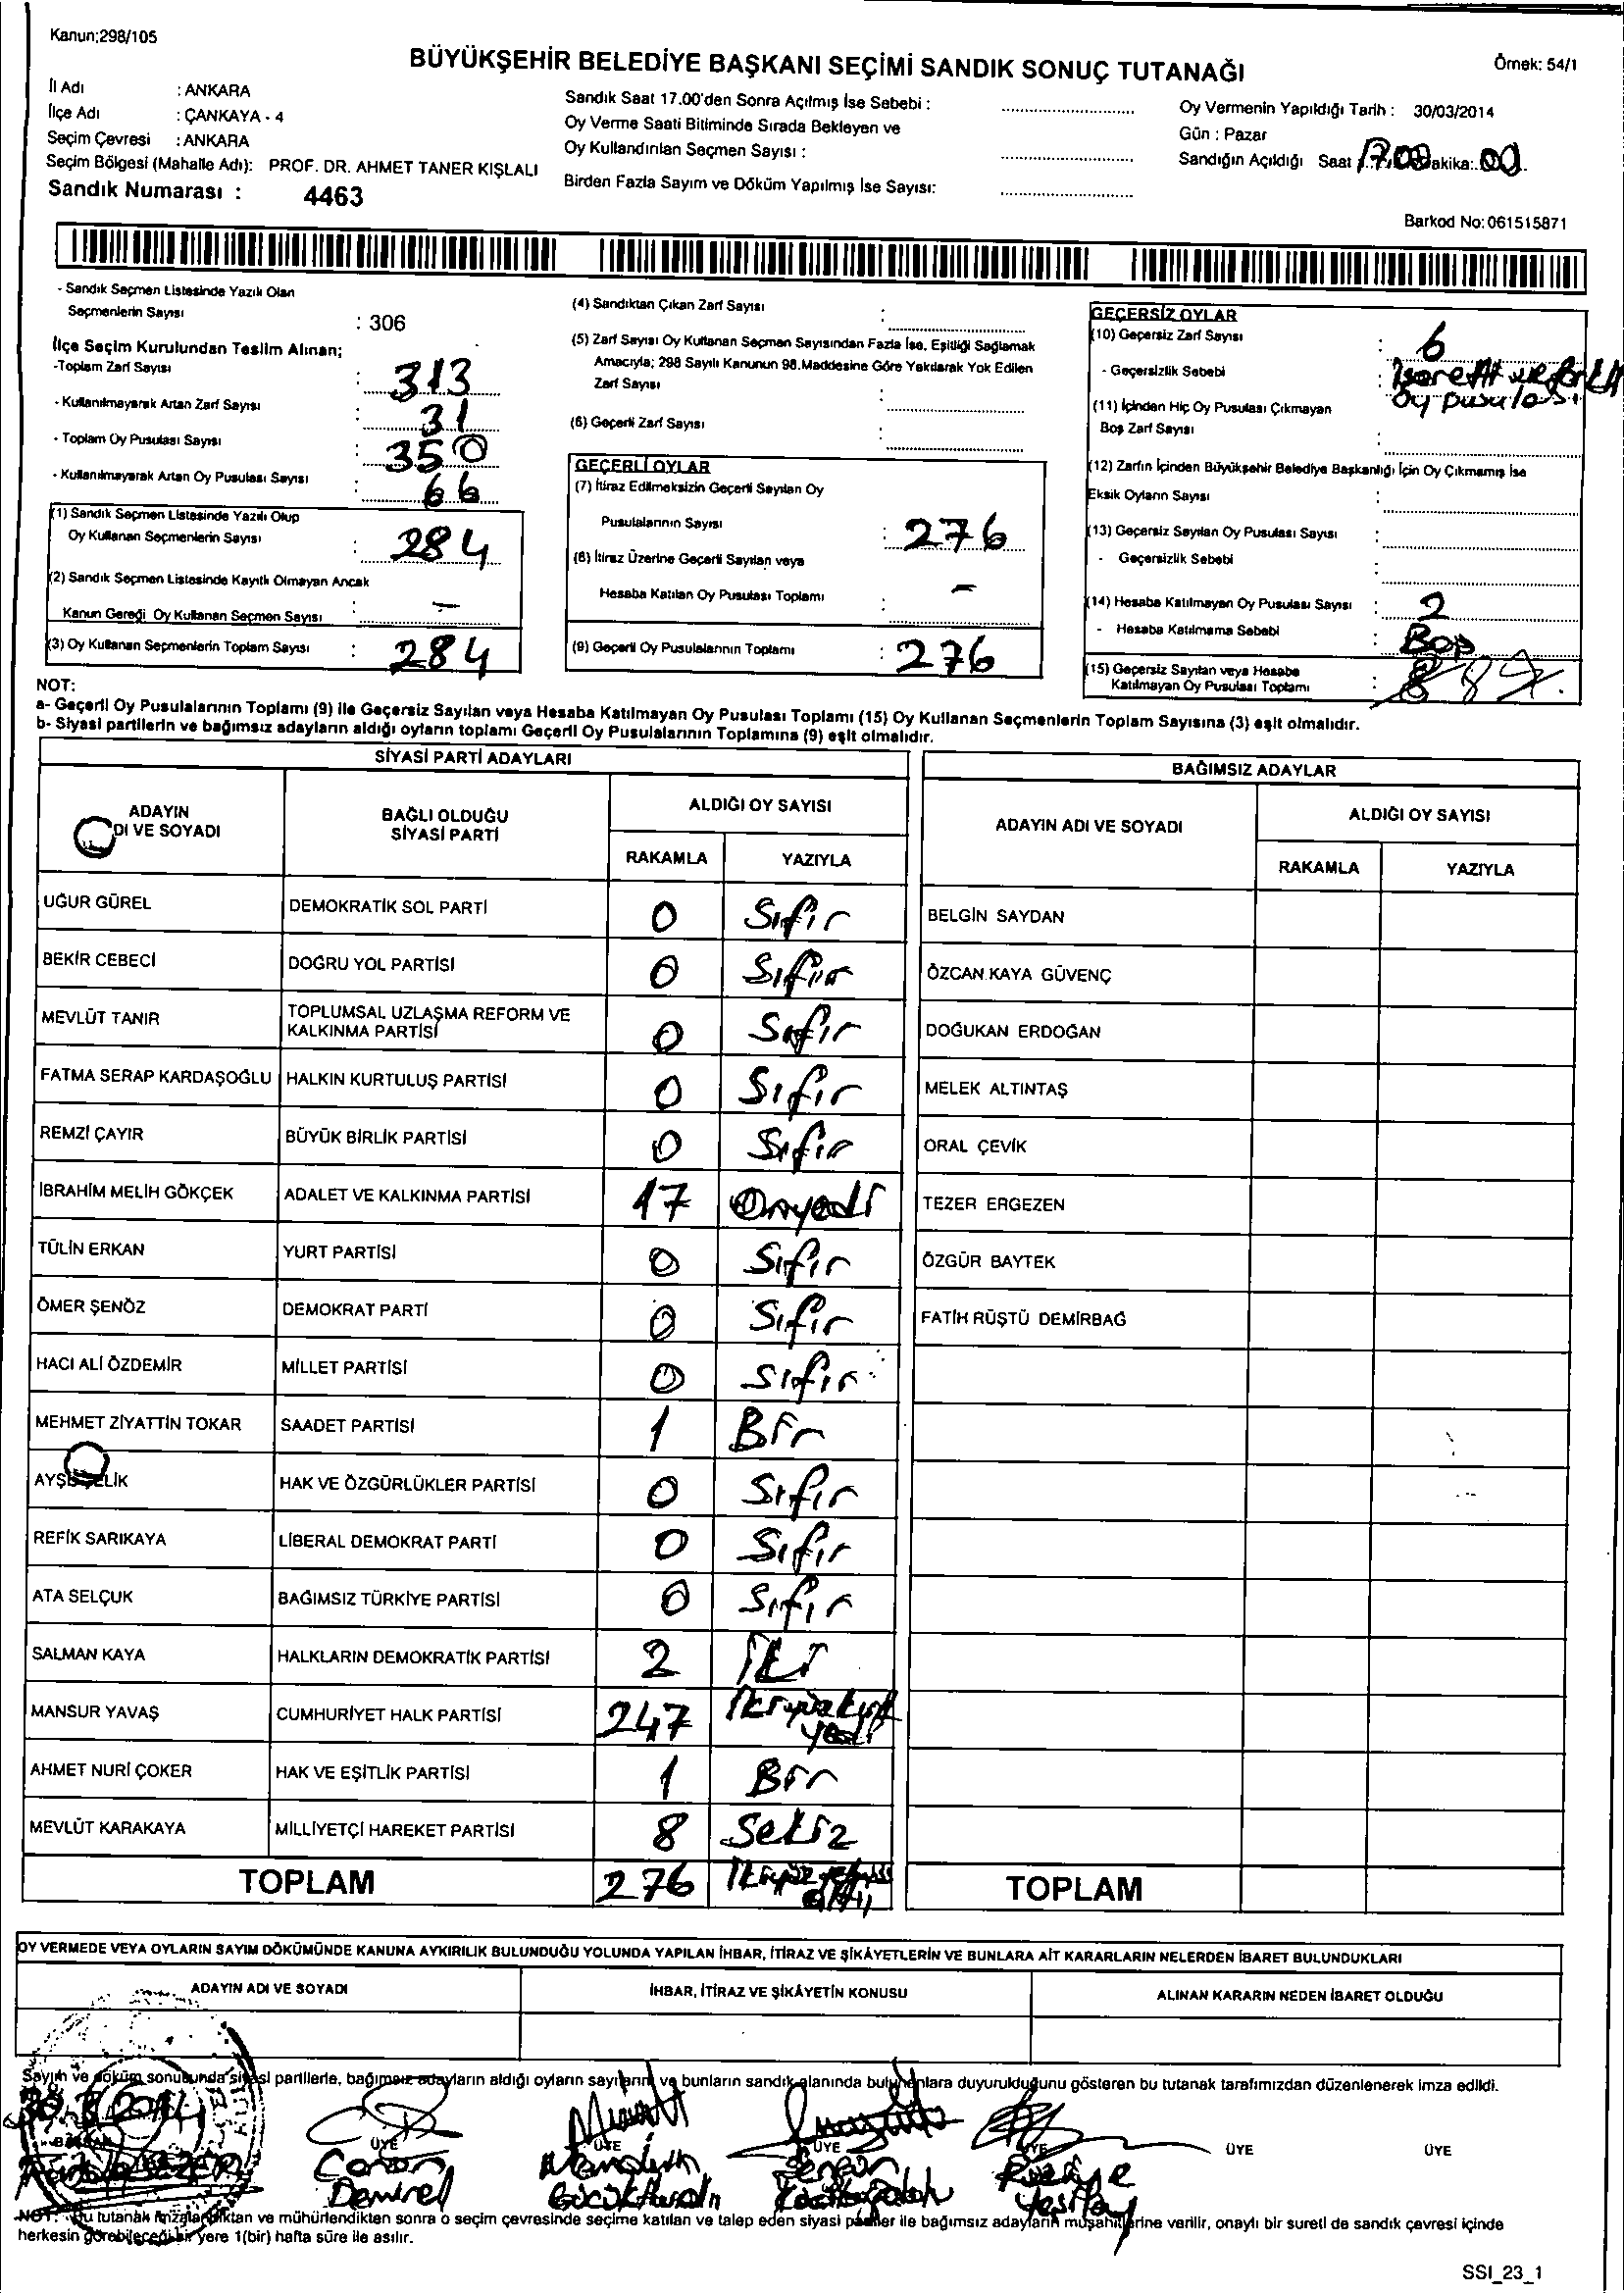 Kanun;298/105
BÜYÜKŞEHİR BELEDİYE BAŞKANI SEÇİMİ SANDIK SONUÇ TUTANAĞI
Örnek: 54/1
İl Adı : ANKARA
İlçe Adı : ÇANKAYA - 4
Seçim Çevresi : ANKARA
Seçim Bölgesi (Mahalle Adı): PROF. DR. AHMET TANER KIŞLALI
Sandık Numarası : 4463
Sandık Saat 17.00'den Sonra Açılmış İse Sebebi :
Oy Verme Saati Bitiminde Sırada Bekleyen ve
Oy Kullandırılan Seçmen Sayısı :
Birden Fazla Sayım ve Döküm Yapılmış İse Sayısı:
Oy Vermenin Yapıldığı Tarih : 30/03/2014
Gün : Pazar
Sandığın Açıldığı Saat 17.00 Dakika: 00
Barkod No: 061515871
- Sandık Seçmen Listesinde Yazılı Olan
Seçmenlerin Sayısı : 306
İlçe Seçim Kurulundan Teslim Alınan;
-Toplam Zarf Sayısı : 313
- Kullanılmayarak Artan Zarf Sayısı : 31
- Toplam Oy Pusulası Sayısı : 350
- Kullanılmayarak Artan Oy Pusulası Sayısı : 66
(1) Sandık Seçmen Listesinde Yazılı Olup
Oy Kullanan Seçmenlerin Sayısı : 284
(2) Sandık Seçmen Listesinde Kayıtlı Olmayan Ancak
Kanun Gereği Oy Kullanan Seçmen Sayısı : -
(3) Oy Kullanan Seçmenlerin Toplam Sayısı : 284
(4) Sandıktan Çıkan Zarf Sayısı :
(5) Zarf Sayısı Oy Kullanan Seçmen Sayısından Fazla İse, Eşitliği Sağlamak
Amacıyla; 298 Sayılı Kanunun 98.Maddesine Göre Yakılarak Yok Edilen
Zarf Sayısı :
(6) Geçerli Zarf Sayısı :
GEÇERLİ OYLAR
(7) İtiraz Edilmeksizin Geçerli Sayılan Oy
Pusulalarının Sayısı : 276
(8) İtiraz Üzerine Geçerli Sayılan veya
Hesaba Katılan Oy Pusulası Toplamı : -
(9) Geçerli Oy Pusulalarının Toplamı : 276
GEÇERSİZ OYLAR
(10) Geçersiz Zarf Sayısı : 6
- Geçersizlik Sebebi :
oy pusulası
(11) İçinden Hiç Oy Pusulası Çıkmayan
Boş Zarf Sayısı :
(12) Zarfın İçinden Büyükşehir Belediye Başkanlığı İçin Oy Çıkmamış İse
Eksik Oyların Sayısı :
(13) Geçersiz Sayılan Oy Pusulası Sayısı :
- Geçersizlik Sebebi :
(14) Hesaba Katılmayan Oy Pusulası Sayısı : 2
- Hesaba Katılmama Sebebi : Boş
(15) Geçersiz Sayılan veya Hesaba
Katılmayan Oy Pusulası Toplamı : 8
NOT:
a- Geçerli Oy Pusulalarının Toplamı (9) ile Geçersiz Sayılan veya Hesaba Katılmayan Oy Pusulası Toplamı (15) Oy Kullanan Seçmenlerin Toplam Sayısına (3) eşit olmalıdır.
b- Siyasi partilerin ve bağımsız adayların aldığı oyların toplamı Geçerli Oy Pusulalarının Toplamına (9) eşit olmalıdır.
SİYASİ PARTİ ADAYLARI
ADAYIN
DI VE SOYADI
BAĞLI OLDUĞU
SİYASİ PARTİ
ALDIĞI OY SAYISI
RAKAMLA YAZIYLA
UĞUR GÜREL DEMOKRATİK SOL PARTİ 0 Sıfır
BEKİR CEBECİ DOĞRU YOL PARTİSİ 0 Sıfır
MEVLÜT TANIR TOPLUMSAL UZLAŞMA REFORM VE
KALKINMA PARTİSİ 0 Sıfır
FATMA SERAP KARDAŞOĞLU HALKIN KURTULUŞ PARTİSİ 0 Sıfır
REMZİ ÇAYIR BÜYÜK BİRLİK PARTİSİ 0 Sıfır
İBRAHİM MELİH GÖKÇEK ADALET VE KALKINMA PARTİSİ 17 Onyedi
TÜLİN ERKAN YURT PARTİSİ 0 Sıfır
ÖMER ŞENÖZ DEMOKRAT PARTİ 0 Sıfır
HACI ALİ ÖZDEMİR MİLLET PARTİSİ 0 Sıfır
MEHMET ZİYATTİN TOKAR SAADET PARTİSİ 1 Bir
AYŞE ÇELİK HAK VE ÖZGÜRLÜKLER PARTİSİ 0 Sıfır
REFİK SARIKAYA LİBERAL DEMOKRAT PARTİ 0 Sıfır
ATA SELÇUK BAĞIMSIZ TÜRKİYE PARTİSİ 0 Sıfır
SALMAN KAYA HALKLARIN DEMOKRATİK PARTİSİ 2 İki
MANSUR YAVAŞ CUMHURİYET HALK PARTİSİ 247 İkiyüzkırk
yedi
AHMET NURİ ÇOKER HAK VE EŞİTLİK PARTİSİ 1 Bir
MEVLÜT KARAKAYA MİLLİYETÇİ HAREKET PARTİSİ 8 Sekiz
TOPLAM 276 İkiyüz yetmiş
altı
BAĞIMSIZ ADAYLAR
ADAYIN ADI VE SOYADI
ALDIĞI OY SAYISI
RAKAMLA YAZIYLA
BELGİN SAYDAN
ÖZCAN KAYA GÜVENÇ
DOĞUKAN ERDOĞAN
MELEK ALTINTAŞ
ORAL ÇEVİK
TEZER ERGEZEN
ÖZGÜR BAYTEK
FATİH RÜŞTÜ DEMİRBAĞ
TOPLAM
OY VERMEDE VEYA OYLARIN SAYIM DÖKÜMÜNDE KANUNA AYKIRILIK BULUNDUĞU YOLUNDA YAPILAN İHBAR, İTİRAZ VE ŞİKÂYETLERİN VE BUNLARA AİT KARARLARIN NELERDEN İBARET BULUNDUKLARI
ADAYIN ADI VE SOYADI İHBAR, İTİRAZ VE ŞİKÂYETİN KONUSU ALINAN KARARIN NEDEN İBARET OLDUĞU
Sayım ve döküm sonucunda siyasi partilerle, bağımsız adayların aldığı oyların sayılarını ve bunların sandık alanında bulunanlara duyurulduğunu gösteren bu tutanak tarafımızdan düzenlenerek imza edildi.
30.3.2014
BAŞKAN ÜYE ÜYE ÜYE ÜYE ÜYE ÜYE
Canan
Demirel
NOT: Bu tutanak imzalandıktan ve mühürlendikten sonra o seçim çevresinde seçime katılan ve talep eden siyasi partiler ile bağımsız adayların müşahitlerine verilir, onaylı bir sureti de sandık çevresi içinde
herkesin görebileceği bir yere 1(bir) hafta süre ile asılır.
SSI_23_1